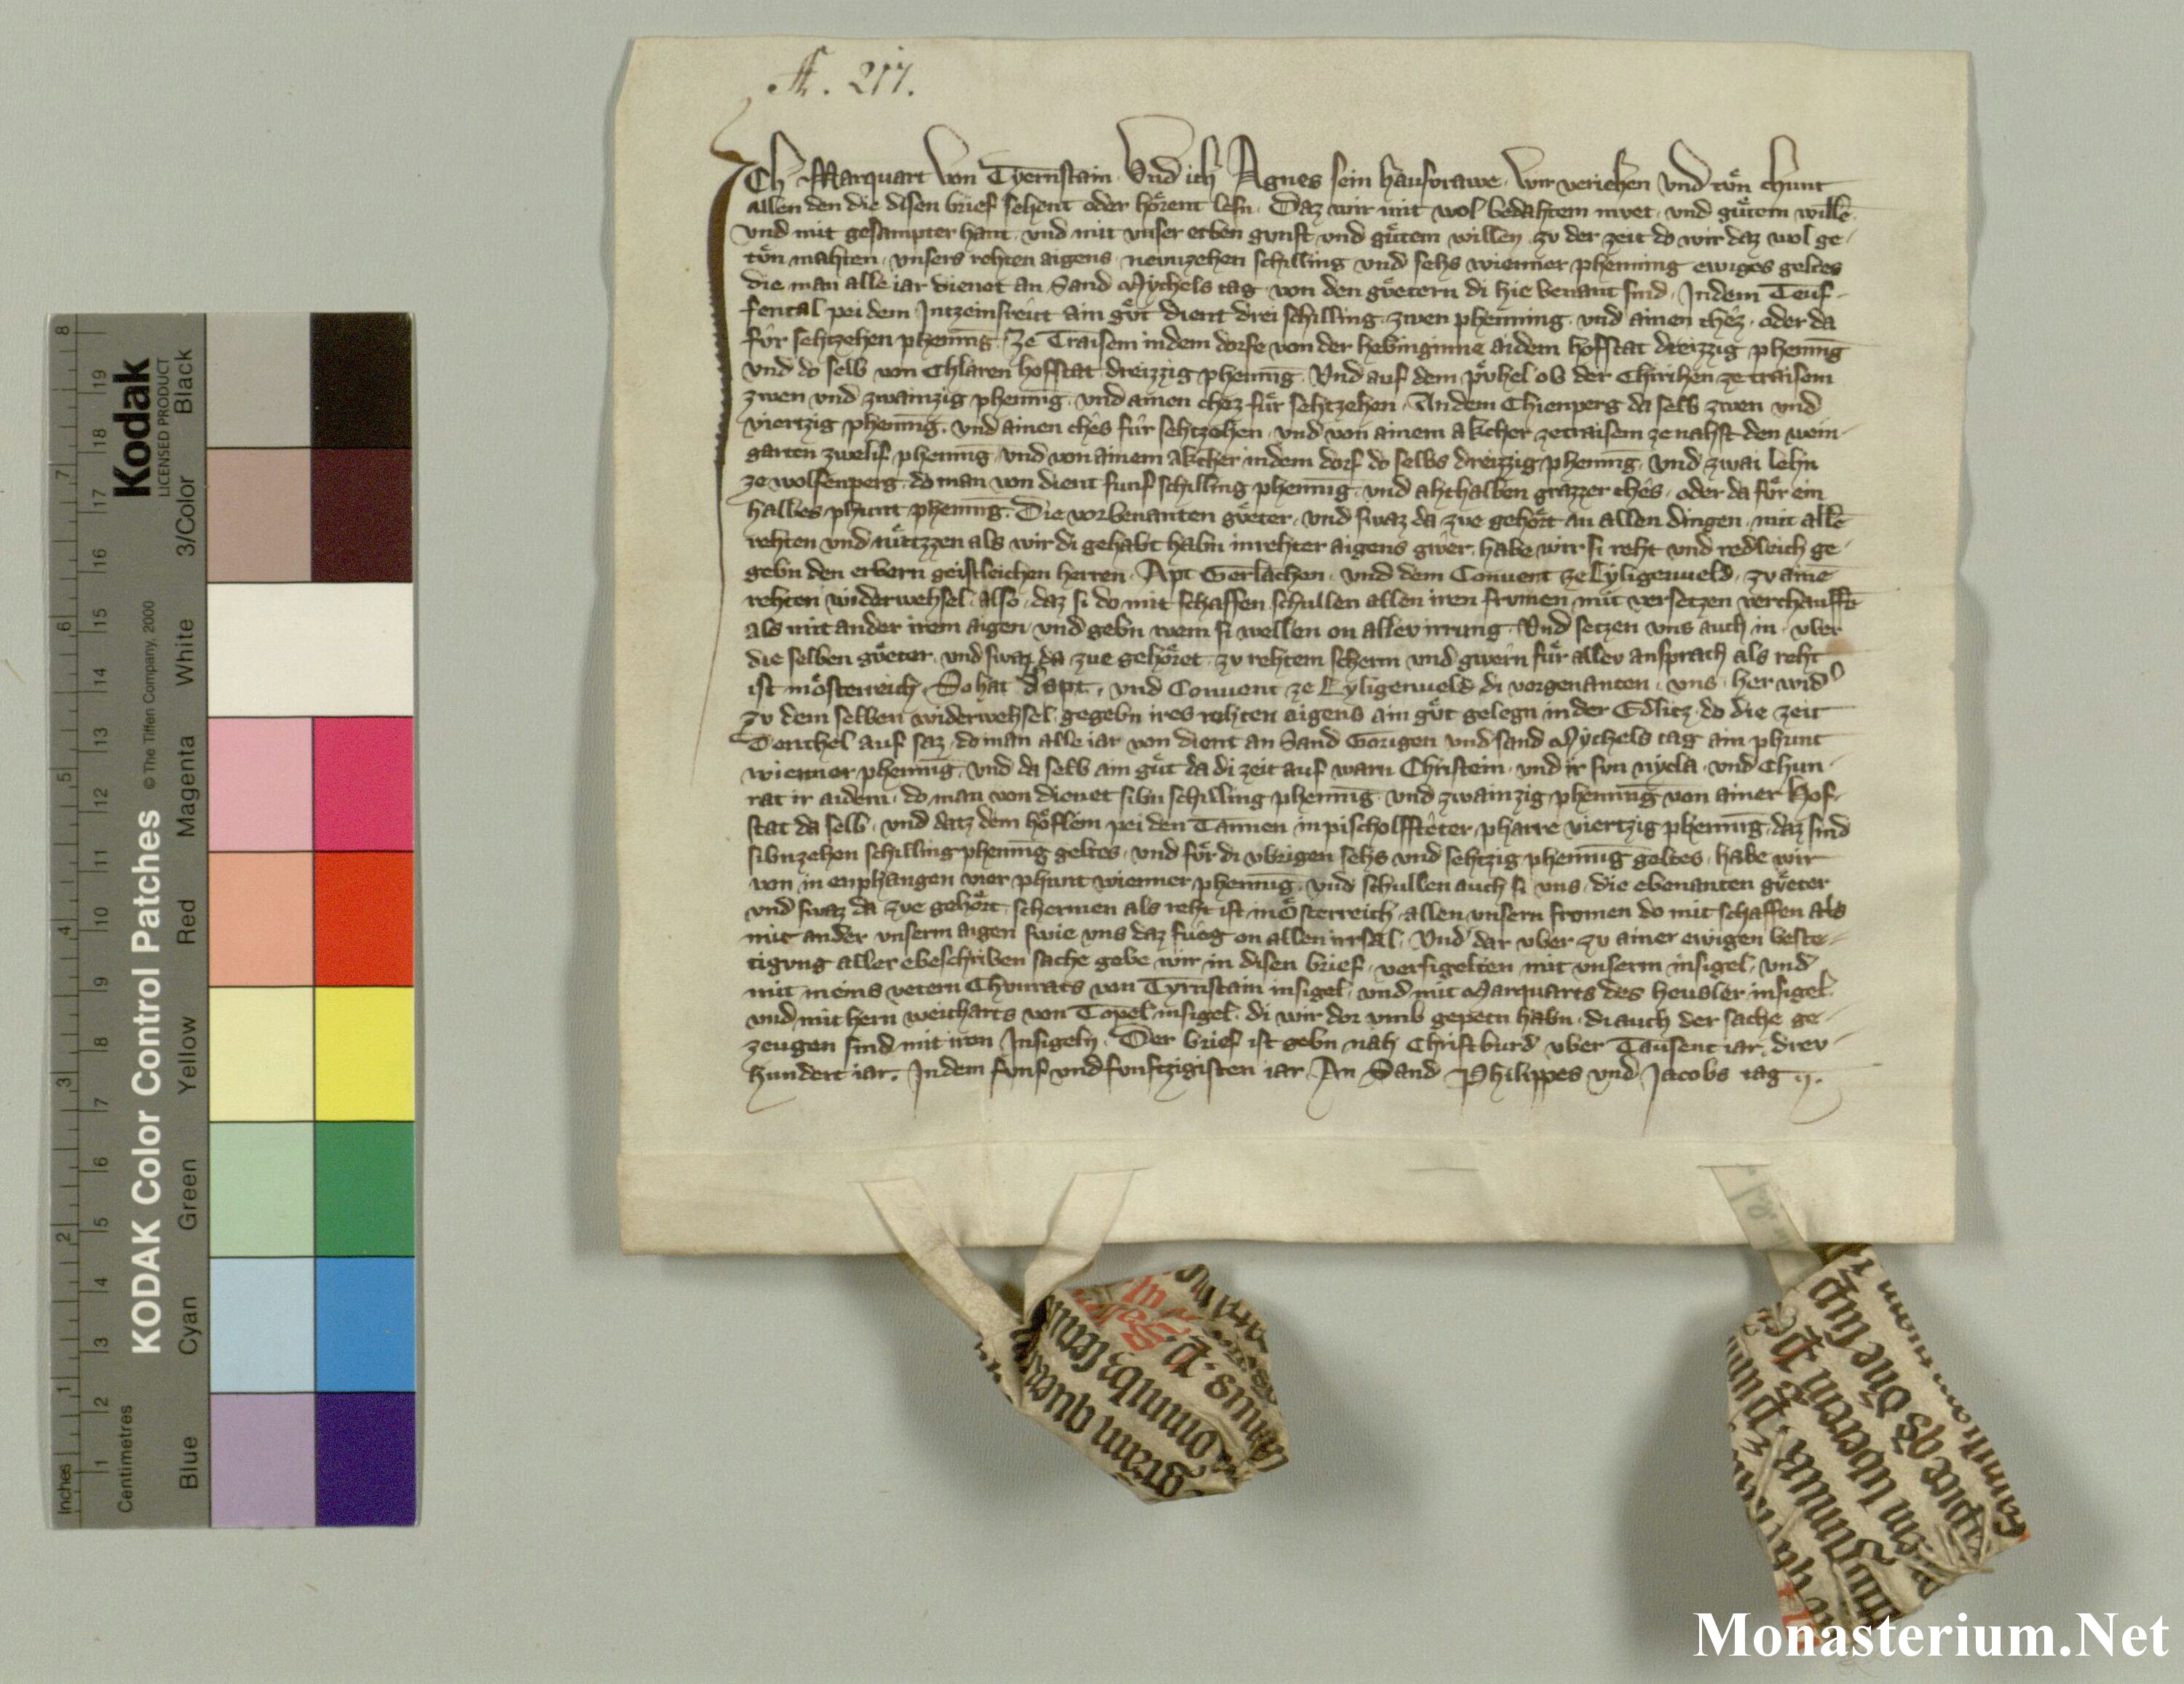 ff. 217.
Ich Marquart von Tyernstain. Vnd ich Agnes sein hausvrawe. Wir veriehen vnd tůn chunt
allen den die disen brief sehent oder hőrent lesn. Daz wir mit wol bedahtem mvet. vnd gůtem willē
vnd mit gesampter hant. vnd mit vnser erben gvnst vnd gůtem willen. zv der zeit do wir daz wol ge-
tůn mahten. vnsers rehten aigens. nevnzehen schilling vnd sehs wienner phenning ewiges geltes
die man alle iar dienet an Sand Mychels tag von den gůetern di hie benant sind. Indem Teuf-
fental pei dem Intzeinsreut ain gůt dient drei schilling. zwen phenning. vnd ainen chez. oder da
fůr sehtzehen phenning. Ze Traisem indem dorfe von der hebinginne aidem hofstat dreizzig phennīg
vnd do selb von Chlaren hofstat dreizzig phennīg. Vnd auf dem půhel ob der Chirihen ze traisem
zwen vnd zwainzig phennīg. vnd ainen chez fůr sehtzehen. Andem Chienperg da selb zwen vnd
viertzig phennīg. vnd ainen chès fůr sehtzehen. vnd von ainem akcher zetraisem ze nahst den wein-
garten zwelif phennīg. vnd von ainem akcher indem dorf do selbs dreizzig phennīg. Vnd zwai lehn
ze wolfenperg. do man von dient funf schilling phennīg. vnd ahthalben grazzer chès. oder da fůr ein
halbes phunt phennīg. Die vorbenanten gůeter. vnd swaz da zve gehőrt an allen dingen. mit allē
rehten vnd nůttzzen als wir di gehabt habn inrehter aigens gwer. habe wir si reht vnd redleich ge-
gebn den erbern geistleichen herren. Apt Gerlachen. vnd dem Conuent ze Lyligenueld. zv aine
rehten widerwehsel. also. daz si do mit schaffen schullen allen iren frumen mit versetzen verchauffē
als mit ander irem aigen. vnd gebn wem si wellen on allev irrung. Vnd setzen vns auch in. vber
die selben gůeter. vnd swaz da zue gehőret. zv rehtem scherm vnd gwern fůr allev ansprach als reht
ist in ősterreich. So hat d' apt. vnd Conuent ze Lyligenueld di vorgenanten. vns. her wid'
zv dem selben widerwehsel. gegebn ires rehten aigens ain gůt gelegn in der Edlitz. do die zeit
Tenchel auf saz. do man alle iar von dient an Sand Gorigen vnd sand Mychels tag ain phunt
wienner phennīg. vnd da selb ain gůt da di zeit auf warn Christein. vnd ir svn nycla. vnd Chun-
rat ir aidem. do man von dienet sibn schilling phennīg. vnd zwainzig phennīg von ainer hof-
stat da selb. vnd datz dem hőflein pei den Tannen in pischolfstèter pharre viertzig phennīg. daz sind
sibnzehen schilling phennīg geltes. vnd fůr di vbrigen sehs vnd sehtzig phennīg geltes. habe wir
von in enphangen vier phunt wienner phennīg. vnd schullen auch si vns. die ebenanten gůeter
vnd swaz da zve gehőrt. schermen als reht ist in Ősterreich. allen vnsern fromen do mit schaffen als
mit ander vnserm aigen swie vns daz fueg on allen irrsal. Vnd dar vber zv ainer ewigen beste-
tigvng aller ebeschriben sache gebe wir in disen brief. versigelten mit vnserm insigel. vnd
mit meins vetern Chvnrats von Tyrnstain insigel. vnd mit Marquarts des heusler insigel.
vnd mit hern weicharts von Topel insigel. di wir dor vmb gepetn habn. di auch der sache ge-
zeugen sind mit iren Insigeln. Der brief ist gebn nah Christburd vber Tausent iar. drev-
hundert iar. Indem fvnf vnd fvnftzigisten iar. An Sand Philippes vnd Jacobs tag
Kodak
LICENSED PRODUCT
KODAK Color Control Patches
© The Tiffen Company, 2000
Black
3/Color
White
Magenta
Red
Yellow
Green
Cyan
Blue
Inches
Centimetres
Monasterium.Net